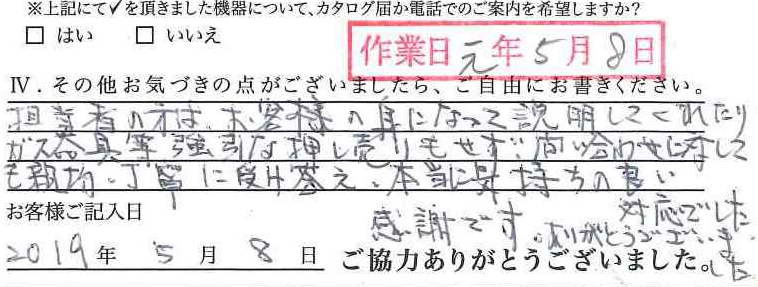 ※上記にて✓を頂きました機器について、カタログ届か電話でのご案内を希望しますか?
□ はい □ いいえ
作業日 元年5月8日
Ⅳ．その他お気づきの点がございましたら、ご自由にお書きください。
担当者の方は、お客様の身になって説明してくれたり
ガス器具等強引な押し売りもせず、問い合わせに対して
も親切、丁寧に受け答え、本当に気持ちの良い
対応でした
感謝です。ありがとうございま
した
お客様ご記入日
2019年 5月 8日 ご協力ありがとうございました。